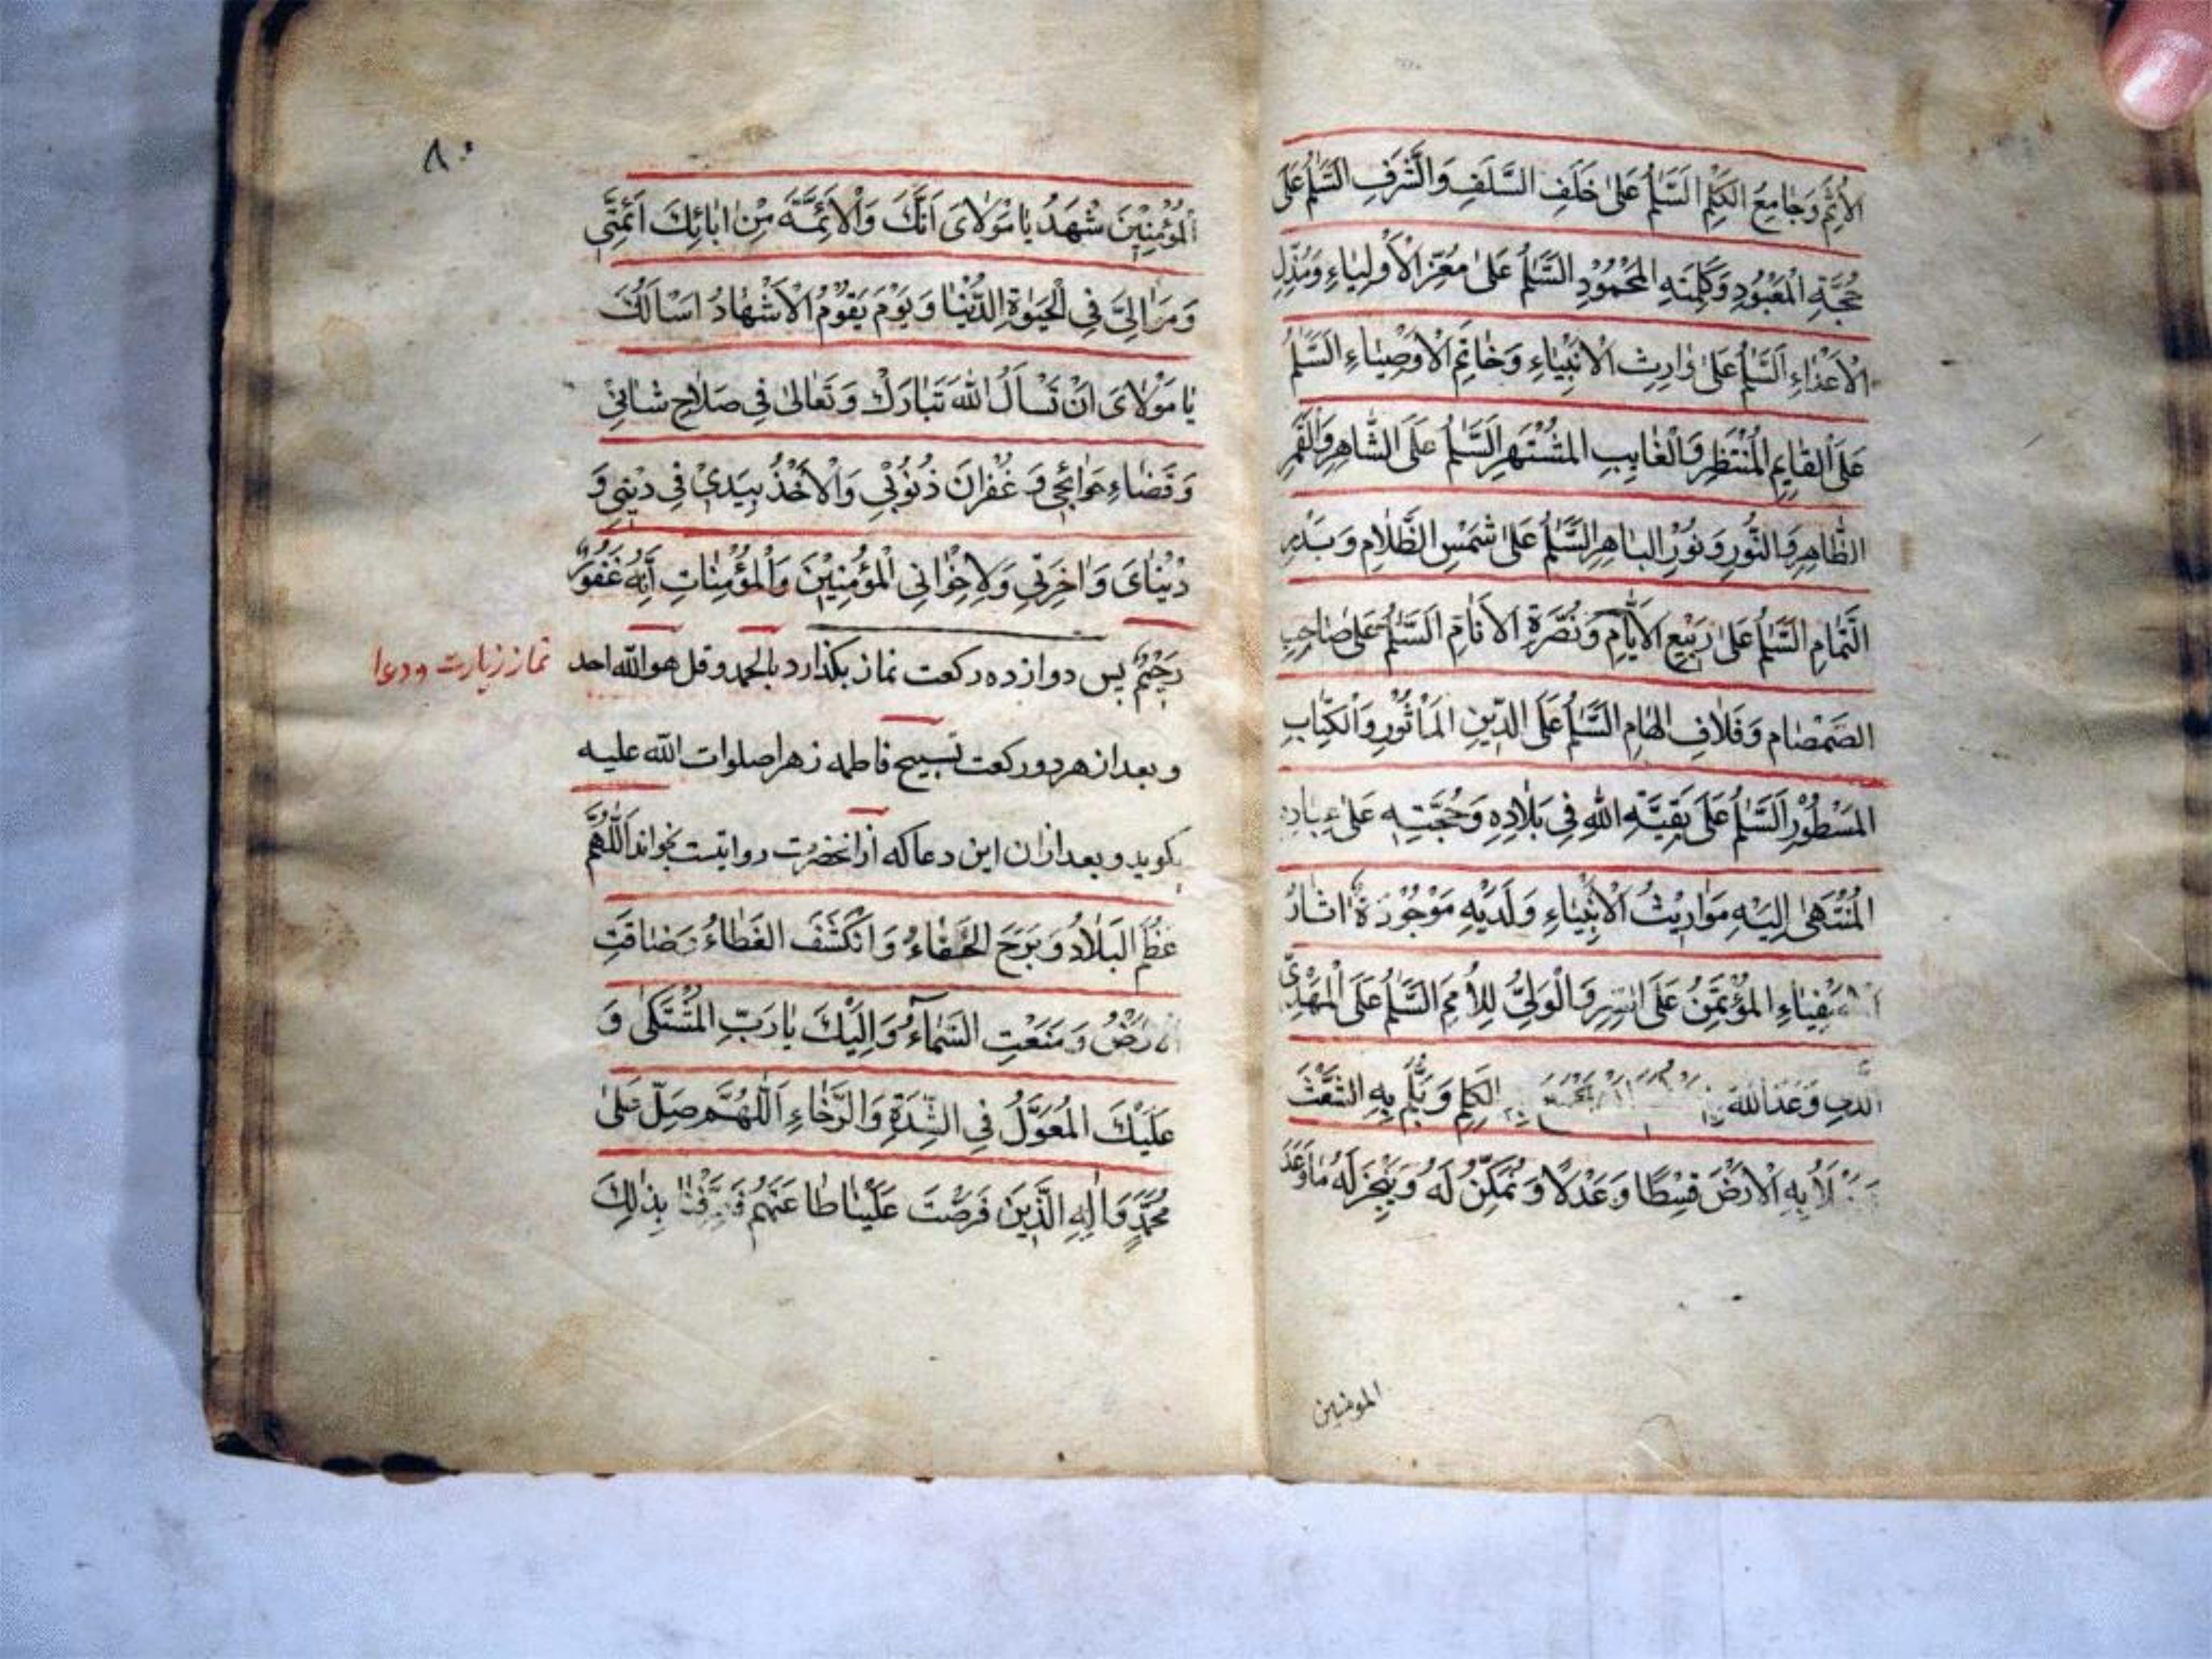 الْأُمَمِ وَجَامِعِ الْكَلِمِ السَّلٰمُ عَلٰى خَلَفِ السَّلَفِ وَالشَّرَفِ السَّلٰمُ عَلٰى
حُجَّةِ الْمَعْبُودِ وَكَلِمَتِهِ الْمَحْمُودِ السَّلٰمُ عَلٰى مُعِزِّ الْأَوْلِيَاءِ وَمُذِلِّ
الْأَعْدَاءِ السَّلٰمُ عَلٰى وَارِثِ الْأَنْبِيَاءِ وَخَاتَمِ الْأَوْصِيَاءِ السَّلٰمُ
عَلَى الْقَايِمِ الْمُنْتَظَرِ وَالْغَايِبِ الْمُشْتَهَرِ السَّلٰمُ عَلَى الشَّاهِرِ وَالْقَمَرِ
الظَّاهِرِ وَالنُّورِ وَنُورِ الْبَاهِرِ السَّلٰمُ عَلٰى شَمْسِ الظَّلَامِ وَبَدْرِ
التَّمَامِ السَّلٰمُ عَلٰى رَبِيعِ الْأَيَّامِ وَنُصْرَةِ الْأَنَامِ السَّلٰمُ عَلٰى صَاحِبِ
الصَّمْصَامِ وَفَلَاقِ الْهَامِ السَّلٰمُ عَلَى الدِّينِ الْمَأْثُورِ وَالْكِتَابِ
الْمَسْطُورِ السَّلٰمُ عَلٰى بَقِيَّةِ اللهِ فِي بَلَادِهِ وَحُجَّتِهِ عَلٰى عِبَادِهِ
الْمُنْتَهٰى إِلَيْهِ مَوَارِيثُ الْأَنْبِيَاءِ وَلَدَيْهِ مَوْجُودَةٌ اٰثَارُ
الْأَصْفِيَاءِ الْمُؤْتَمَنُ عَلَى السِّرِّ وَالْوَلِيِّ لِلْأُمَمِ السَّلٰمُ عَلَى الْمَهْدِيِّ
الَّذِي وَعَدَ اللهُ الْكَلِمَ وَيَلُمَّ بِهِ الشَّعَثَ
بِهِ الْأَرْضَ قِسْطًا وَعَدْلًا وَيُمَكِّنَ لَهُ وَيُنْجِزَ لَهُ مَا وَعَدَ
المومنين
٨٠
الْمُؤْمِنِينَ شْهَدُ يَا مَوْلَايَ اَنَّكَ وَالْأَئِمَّةَ مِنْ اٰبَائِكَ اَئِمَّتِي
وَمَوَالِيَّ فِي الْحَيٰوةِ الدُّنْيَا وَيَوْمَ يَقُومُ الْأَشْهَادُ اَسْاَلُكَ
يَا مَوْلَايَ اَنْ تَسْاَلَ اللهَ تَبَارَكَ وَتَعَالٰى فِي صَلَاحِ شَانِي
وَقَضَاءِ حَوَائِجِي وَغُفْرَانَ ذُنُوبِي وَالْأَخْذُ بِيَدِي فِي دِينِي وَ
دُنْيَايَ وَاٰخِرَتِي وَلِاِخْوَانِي الْمُؤْمِنِينَ وَالْمُؤْمِنَاتِ اِنَّهُ غَفُورٌ
رَحِيمٌ پس دوازده ركعت نماز بكذارد بالحمد وقل هو الله احد
نماز زيارت ودعا
و بعد از هر دو ركعت تسبيح فاطمه زهرا صلوات الله عليه
بكويد و بعد از ان اين دعا كه از انحضرت روايتست بخواند اَللّٰهُمَّ
عَظُمَ الْبَلَادُ وَبَرَحَ الْخَفَاءُ وَانْكَشَفَ الْغَطَاءُ وَضَاقَتِ
الْأَرْضُ وَمَنَعَتِ السَّمَاءُ وَاِلَيْكَ يَا رَبِّ الْمُشْتَكٰى وَ
عَلَيْكَ الْمُعَوَّلُ فِي الشِّدَّةِ وَالرَّخَاءِ اَللّٰهُمَّ صَلِّ عَلٰى
مُحَمَّدٍ وَاٰلِهِ الَّذِينَ فَرَضْتَ عَلَيْنَا طَاعَتَهُمْ فَعَرَّفْتَنَا بِذٰلِكَ